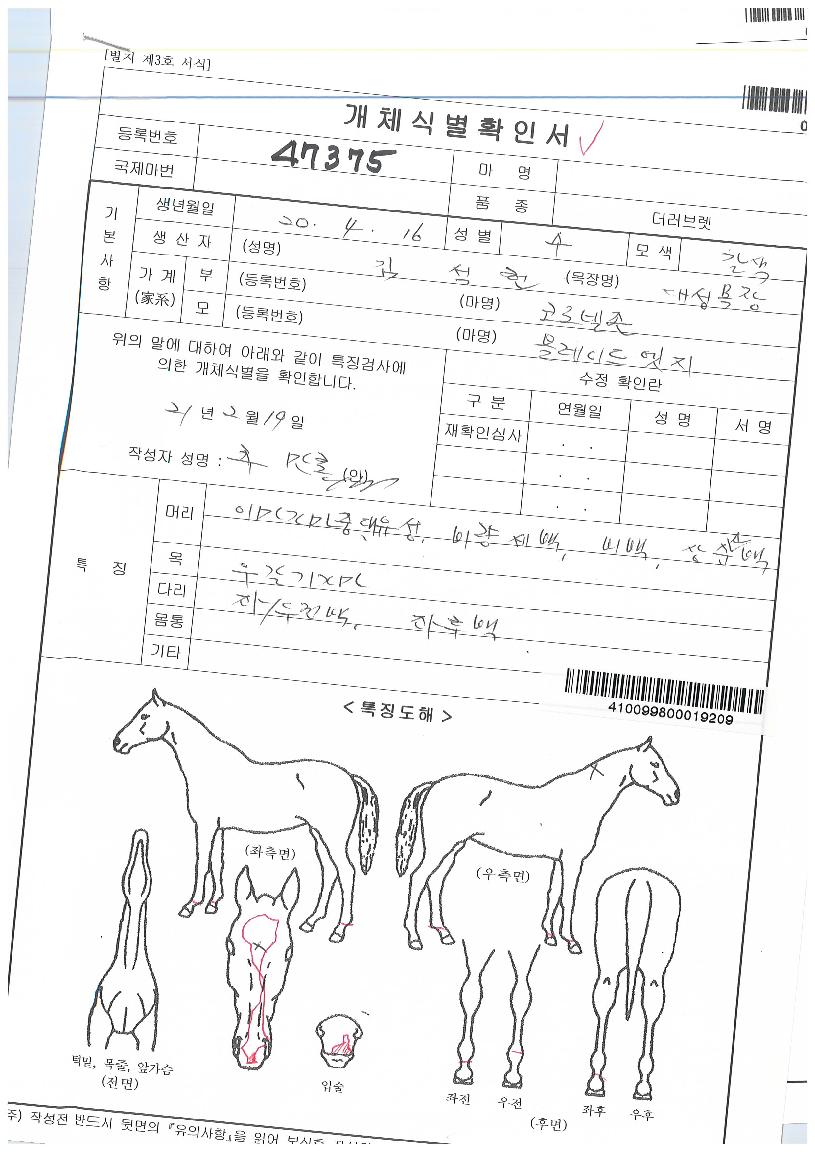 [별지 제3호 서식]
개체식별확인서
등록번호 47375 마 명
국제마번 품 종 더러브렛
기본사항
생년월일 20. 4. 16 성별 수 모색 갈색
생산자 (성명) 김 석 (목장명) 대성목장
가계(家系) 부 (등록번호) (마명) 코로넬존
모 (등록번호) (마명) 블레이드엣지
위의 말에 대하여 아래와 같이 특징검사에
의한 개체식별을 확인합니다.
21년 2월 19일
작성자 성명 : (인)
수정 확인란
구 분 연월일 성 명 서 명
재확인심사 . .
. .
. .
특 징
머리 비백,
목
다리 좌/우전백, 좌후백
몸통
기타
410099800019209
< 특징도해 >
(좌측면)
(우측면)
턱밑, 목줄, 앞가슴
(전면)
입술
좌전 우전
(후면)
좌후 우후
주) 작성전 반드시 뒷면의 『유의사항』을 읽어